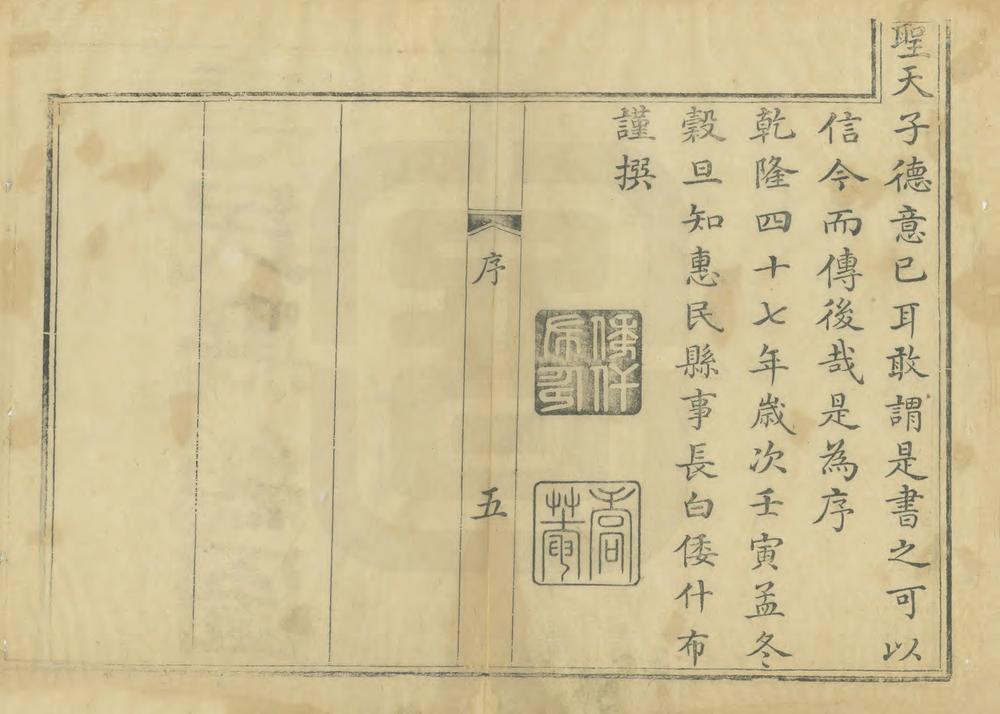 聖天子德意已耳敢謂是書之可以
信今而傳後哉是為序
乾隆四十七年歲次壬寅孟冬
穀旦知惠民縣事長白倭什布
謹撰
倭什布印
序
五